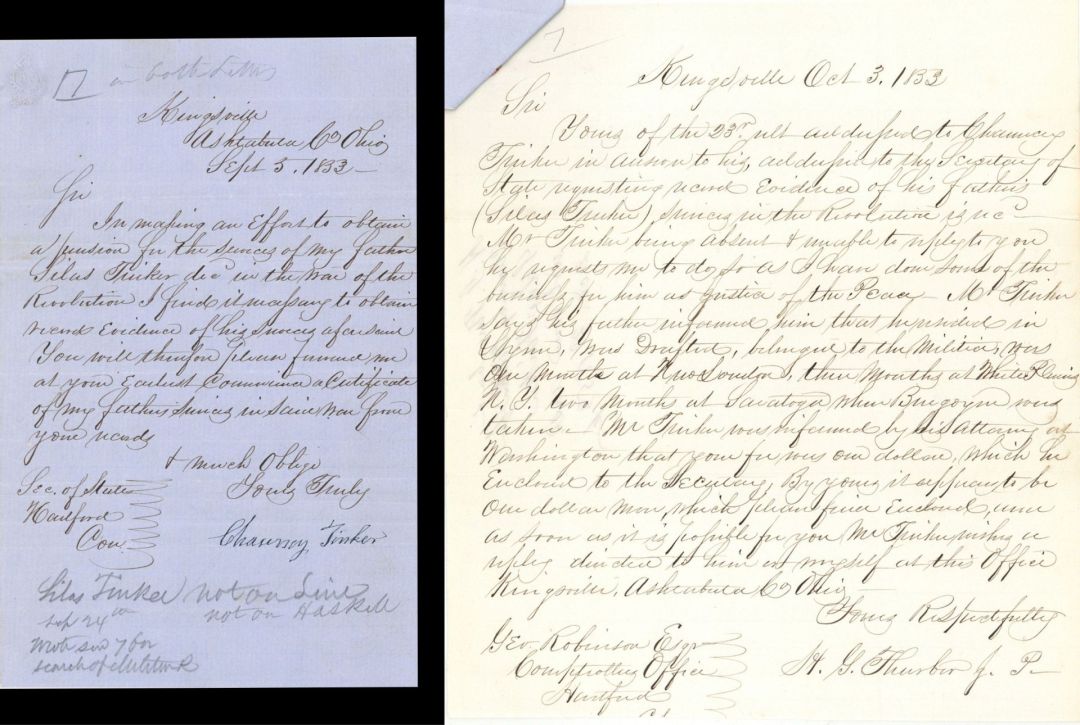 17 in both letters
Kingsville
Ashtabula Co Ohio
Sept 5, 1853
Sir
In making an Effort to obtain
a pension for the services of my father
Silas Tinker decd in the War of the
Revolution I find it necessary to obtain
record Evidence of his services aforesaid
You will therefore please forward me
at your Earliest Convenience a Certificate
of my fathers services in said War from
your records
& much Oblige
Yours Truly
Sec. of State
Hartford
Con
Chauncy Tinker
Silas Tinker not on Line
not on Haskell
Sep 24
search of
7
Kingsville Oct 3. 1853
Sir
Yours of the 23rd ult addressed to Chauncey
Tinker in answer to his, addressed to the Secretary of
State requesting record Evidence of his fathers
(Silas Tinker) services in the Revolution is recd
Mr Tinker being absent & unable to reply to you
he requests me to do so as I have done some of the
business for him as Justice of the Peace - Mr Tinker
says his father informed him that he resided in
Lyme, was Drafted, belonged to the Militia, was
One Month at New London, three Months at White Plains
N.Y. two Months at Saratoga when Burgoyne was
taken - Mr Tinker was informed by his Attorney at
Washington that your fee was one dollar, which he
Enclosed to the Secretary, By yours it appears to be
one dollar more, which please find Enclosed, and
as soon as it is possible for you Mr Tinker wishes a
reply directed to him or myself at this Office
Kingsville, Ashtabula Co Ohio
Yours Respectfully
Geo. Robinson Esqr
Comptrollers Office
Hartford
H. G. Thurber J. P.
Ct